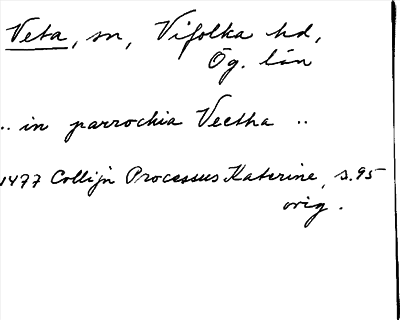 Veta, sn, Vifolka hd,
Ög. län
.. in parrochia Veetha ..
1477 Collijn Processus Katerine, s. 95
orig.